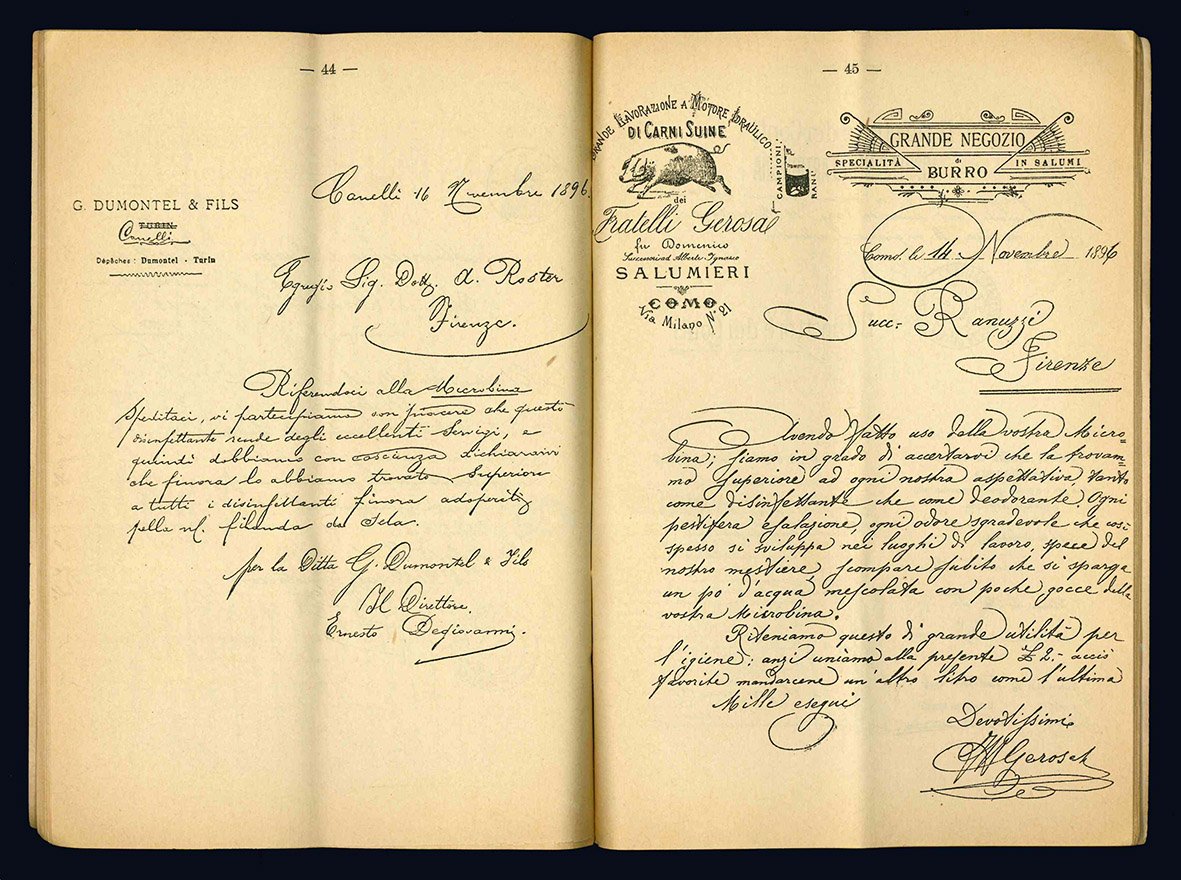 — 44 —
G. DUMONTEL & FILS
TURIN
Canelli
Dépêches: Dumontel - Turin
Canelli 16 Novembre 1896.
Egregio Sig. Dott. A. Roster
Firenze.
Riferendoci alla Microbina
speditaci, vi partecipiamo con piacere che questo
disinfettante rende degli eccellenti servizi, e
quindi dobbiamo con coscienza dichiararvi
che finora lo abbiamo trovato superiore
a tutti i disinfettanti finora adoperati
nella ns. filanda da Seta.
per la Ditta G. Dumontel & Fils
Il Direttore.
Ernesto Degiovanni.
— 45 —
GRANDE LAVORAZIONE A MOTORE IDRAULICO
DI CARNI SUINE
dei
Fratelli Gerosa
fu Domenico
Successori ad Alberto Ignazio
SALUMIERI
COMO
Via Milano N° 21
CAMPIONI
RANU
GRANDE NEGOZIO
SPECIALITÀ di IN SALUMI
BURRO
Como, li 14 Novembre 1896
Succ: Ranuzzi
Firenze
Avendo fatto uso della vostra Micro-
bina; siamo in grado di accertarvi che la trovam-
mo superiore ad ogni nostra aspettativa, tanto
come disinfettante che come deodorante. Ogni
pestifera esalazione, ogni odore sgradevole che così
spesso si sviluppa nei luoghi di lavoro, spece del
nostro mestiere scompare subito che si sparga
un pò d'acqua mescolata con poche gocce della
vostra Microbina.
Riteniamo questo di grande utilità per
l'igiene: anzi uniamo alla presente £ 2.- acciò
favorite mandarcene un'altro litro come l'ultima
Mille esequi
Devotissimi
Gerosa